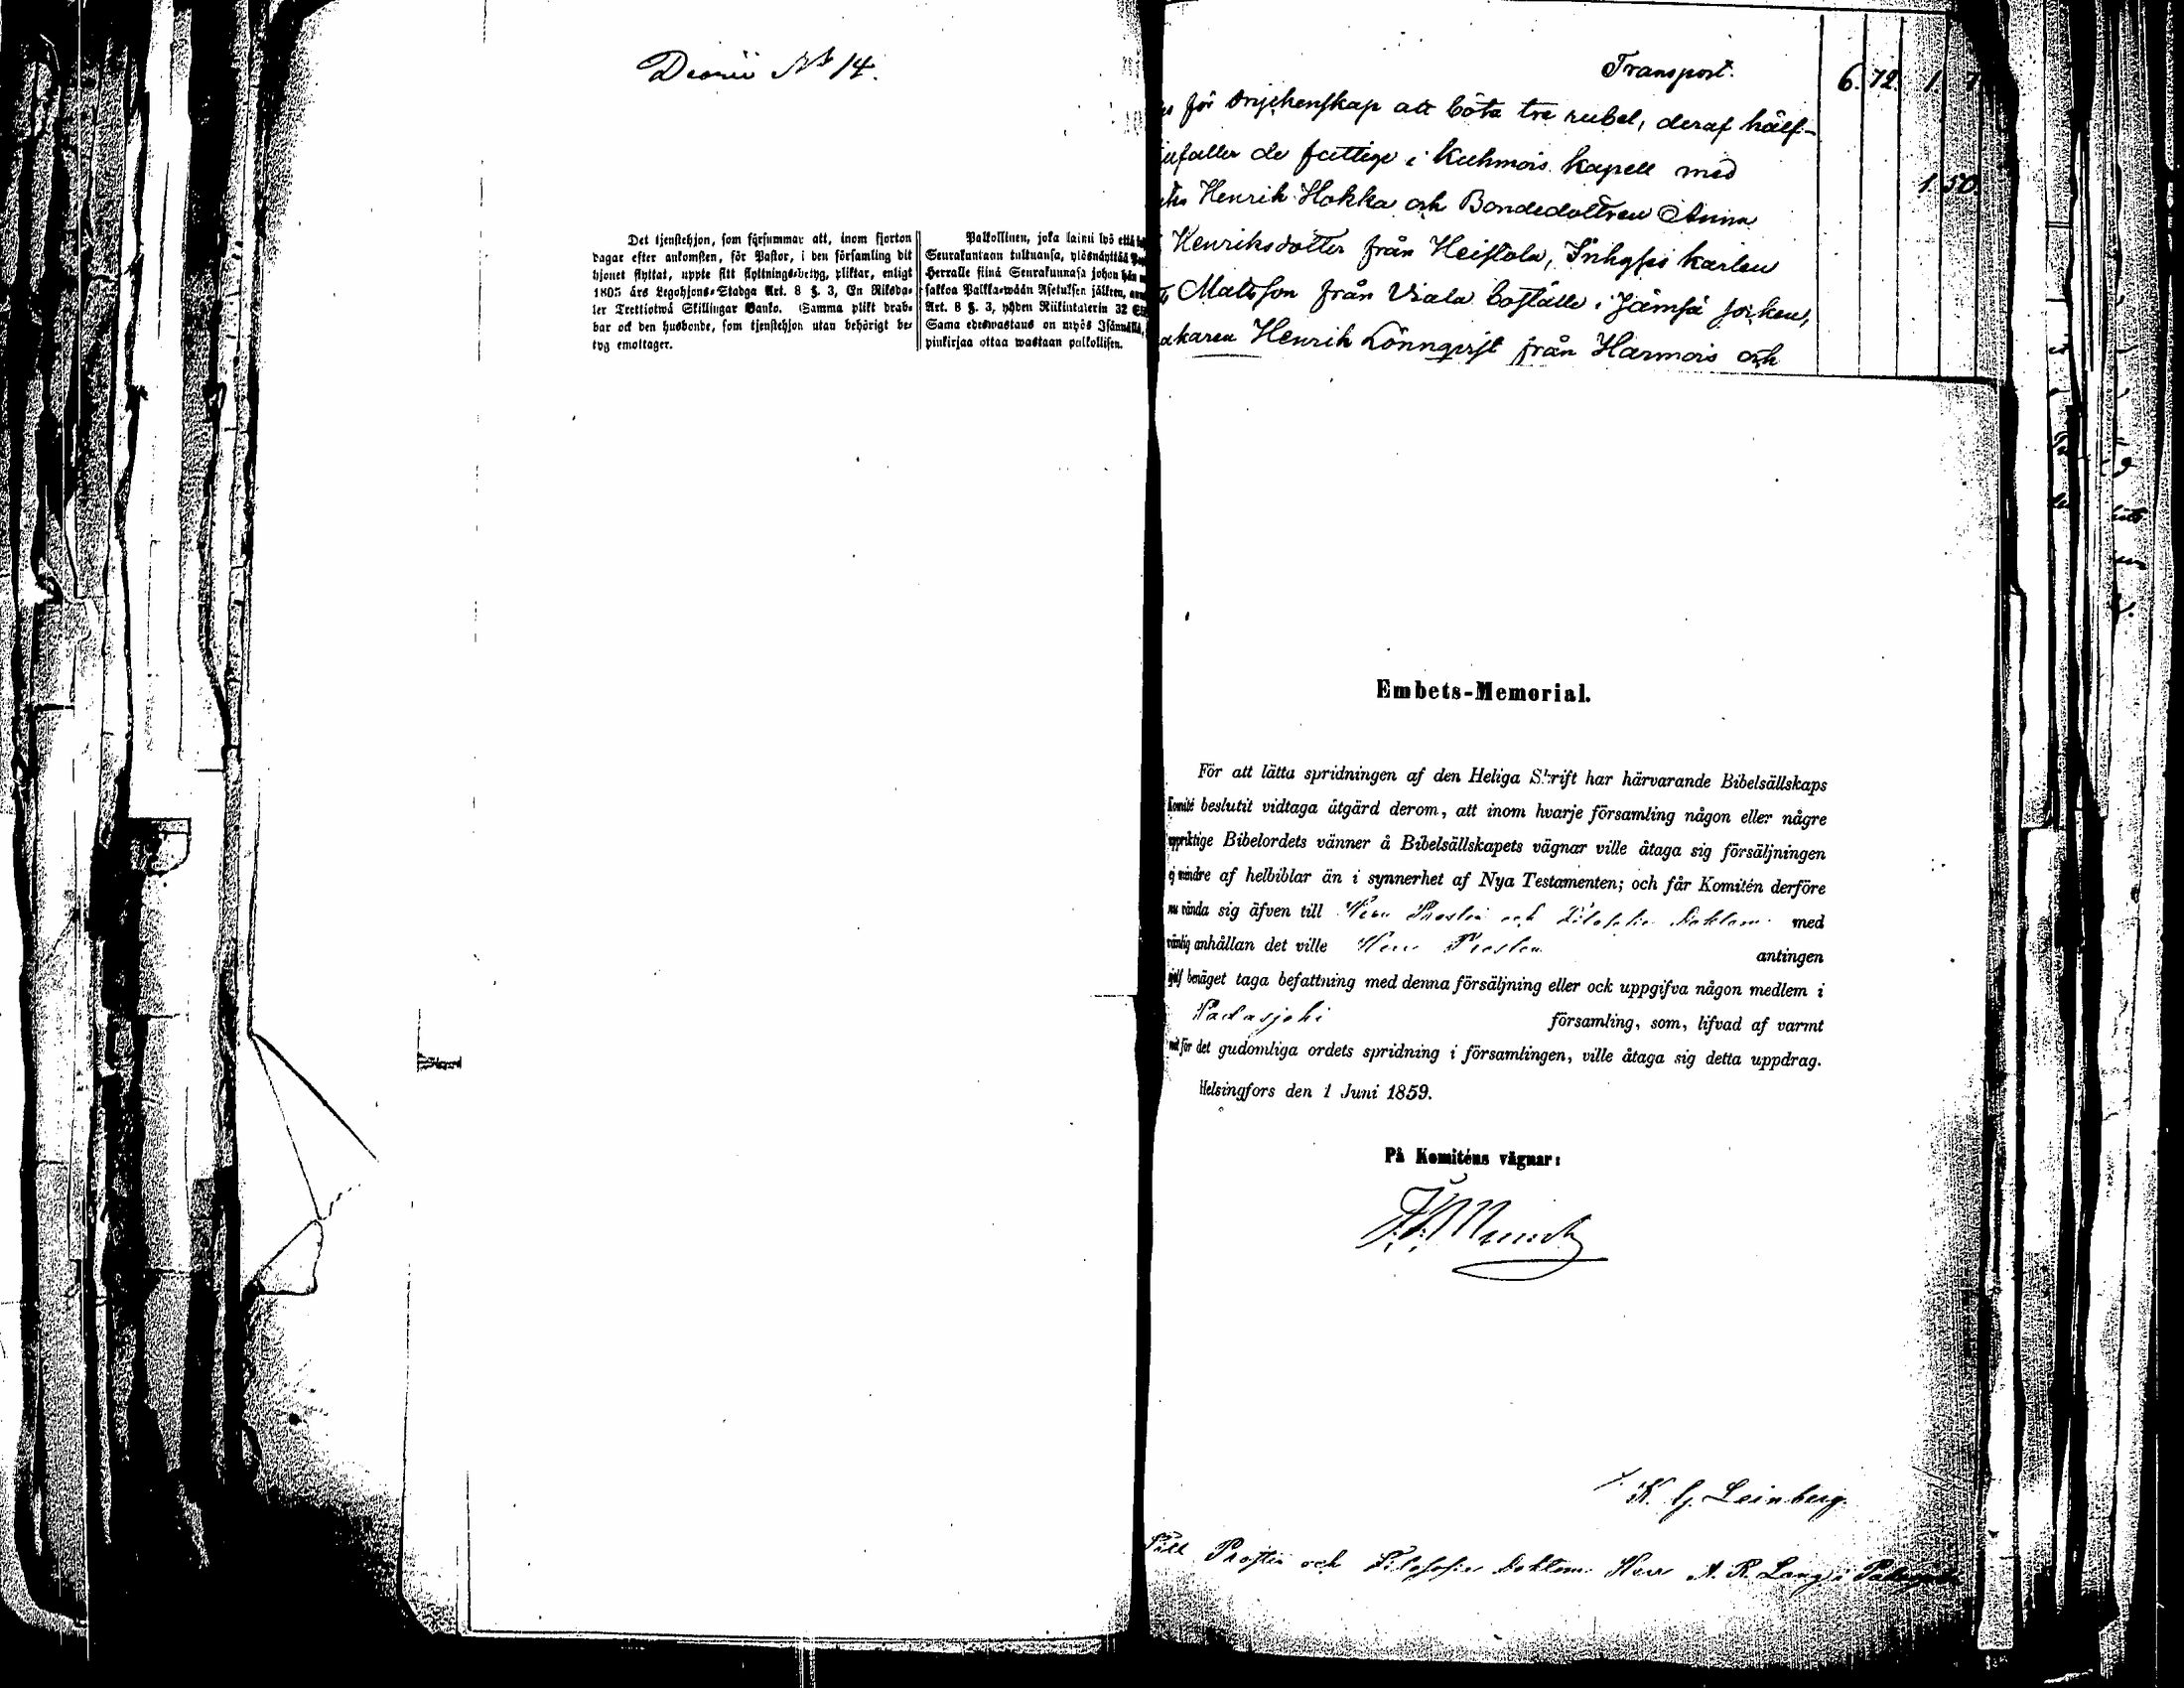 Diarii No 14.
Det tjenstehjon, som försummar att, inom fjorton
dagar efter ankomsten, för Pastor, i den församling dit
hjonet flyttat, uppte sitt flyttningsbetyg, pliktar, enligt
1805 års Legohjons-Stadga Art. 8 §. 3, En Riksda-
ler Trettiotwå Skillingar Banko. Samma plikt drab-
bar ock den husbonde, som tjenstehjon utan behörigt be-
tyg emottager.
Palkollinen, joka lainii lyö että
Seurakuntaan tultuansa, ylösnäyttää
Herralle siinä Seurakunnasa johon hän
sakkoa Palkka-wään Asetuksen jälken,
Art. 8 §. 3, yhden Riikintalerin 32
Sama edeswastaus on myös Isännällä,
pinkirjaa ottaa wastaan palkollisen.
Transport. 6. 72. 1
för dryckenskap att böta tre rubel, deraf hälf-
de fattige i Kuhmois kapell med
1 50
Henrik Hokka och Bondedottren Anna
Henriksdotter från Heistola, Inhyses karlen
Matsson från Wiala boställe i Jämsä socken,
Henrik Lönnqvist från Harmois och
Embets-Memorial.
För att lätta spridningen af den Heliga Skrift har härvarande Bibelsällskaps
Komité beslutit vidtaga åtgärd derom, att inom hvarje församling någon eller några
uppriktige Bibelordets vänner å Bibelsällskapets vägnar ville åtaga sig försäljningen
ej mindre af helbiblar än i synnerhet af Nya Testamenten; och får Komitén derföre
nu vända sig äfven till Herr Prosten och Filosofie Doktorn med
vänlig anhållan det ville Herr Prosten antingen
sjelf benäget taga befattning med denna försäljning eller ock uppgifva någon medlem i
Padasjoki församling, som, lifvad af varmt
nit för det gudomliga ordets spridning i församlingen, ville åtaga sig detta uppdrag.
Helsingfors den 1 Juni 1859.
På Komiténs vägnar:
K. G. Leinberg.
Till Prosten och Filosofie Doktorn Herr A. R. Lang i Padasjoki